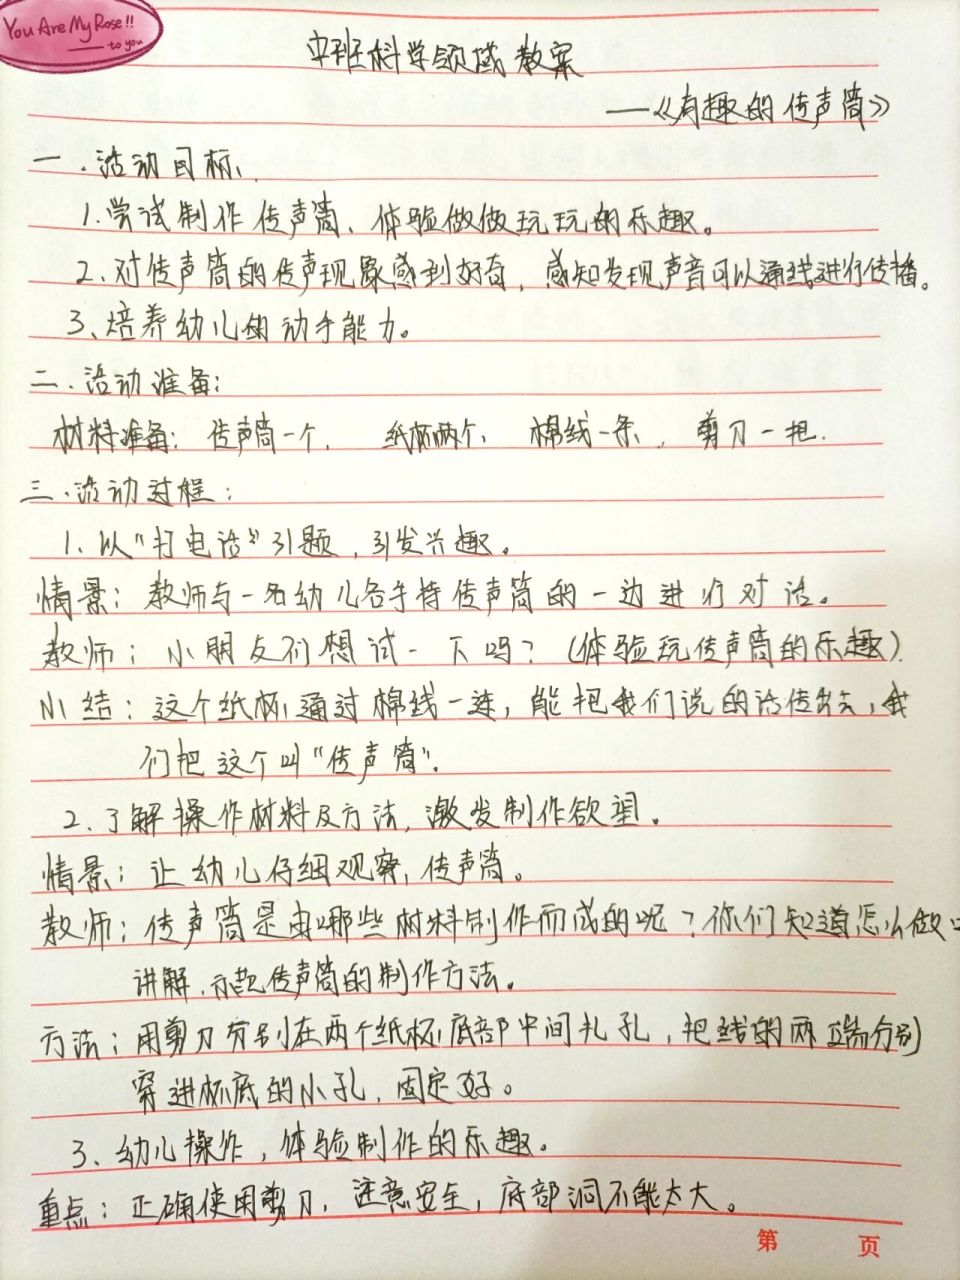 You Are My Rose!!
to you
中班科学领域教案
——《有趣的传声筒》
一.活动目标.
1.尝试制作传声筒、体验做做玩玩的乐趣。
2.对传声筒的传声现象感到好奇，感知发现声音可以通线进行传播。
3、培养幼儿的动手能力。
二.活动准备：
材料准备：传声筒一个、纸杯两个、棉线一条，剪刀一把.
三.活动过程：
1.以“打电话”引题，引发兴趣。
情景：教师与一名幼儿各手持传声筒的一边进行对话。
教师：小朋友们想试一下吗？（体验玩传声筒的乐趣）.
小结：这个纸杯通过棉线一连，能把我们说的话传出去，我
们把这个叫“传声筒”.
2.了解操作材料及方法，激发制作欲望。
情景：让幼儿仔细观察，传声筒。
教师：传声筒是由哪些材料制作而成的呢？你们知道怎么做
讲解、示范传声筒的制作方法。
方法：用剪刀分别在两个纸杯底部中间扎孔，把线的两端分别
穿进杯底的小孔，固定好。
3、幼儿操作，体验制作的乐趣。
重点：正确使用剪刀，注意安全，底部洞不能太大。
第 页